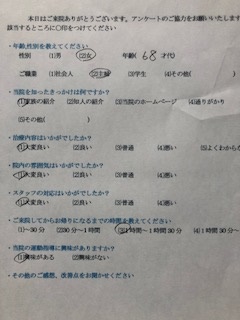 本日はご来院ありがとうございます。アンケートのご協力をお願いいたします
該当するところに○印をつけてください
・年齢,性別を教えてください
性別 (1)男 (2)女 年齢( 68 才代)
ご職業 (1)社会人 (2)主婦 (3)学生 (4)その他(
・当院を知ったきっかけは何ですか?
(1)家族の紹介 (2)知人の紹介 (3)当院のホームページ (4)通りがかり
(5)その他( )
・治療内容はいかがでしたか?
(1)大変良い (2)良い (3)普通 (4)悪い (5)よくわから
・院内の雰囲気はいかがでしたか?
(1)大変良い (2)良い (3)普通 (4)悪い
・スタッフの対応はいかがでしたか?
(1)大変良い (2)良い (3)普通 (4)悪い
・ご来院してからお帰りになるまでの時間を教えてください
(1)~30分 (2)30分~1時間 (3)1時間~1時間30分 (4)1時間30分
・当院の運動指導に興味がありますか?
(1)興味がある (2)興味がない
・その他のご感想、改善点をお聞かせください